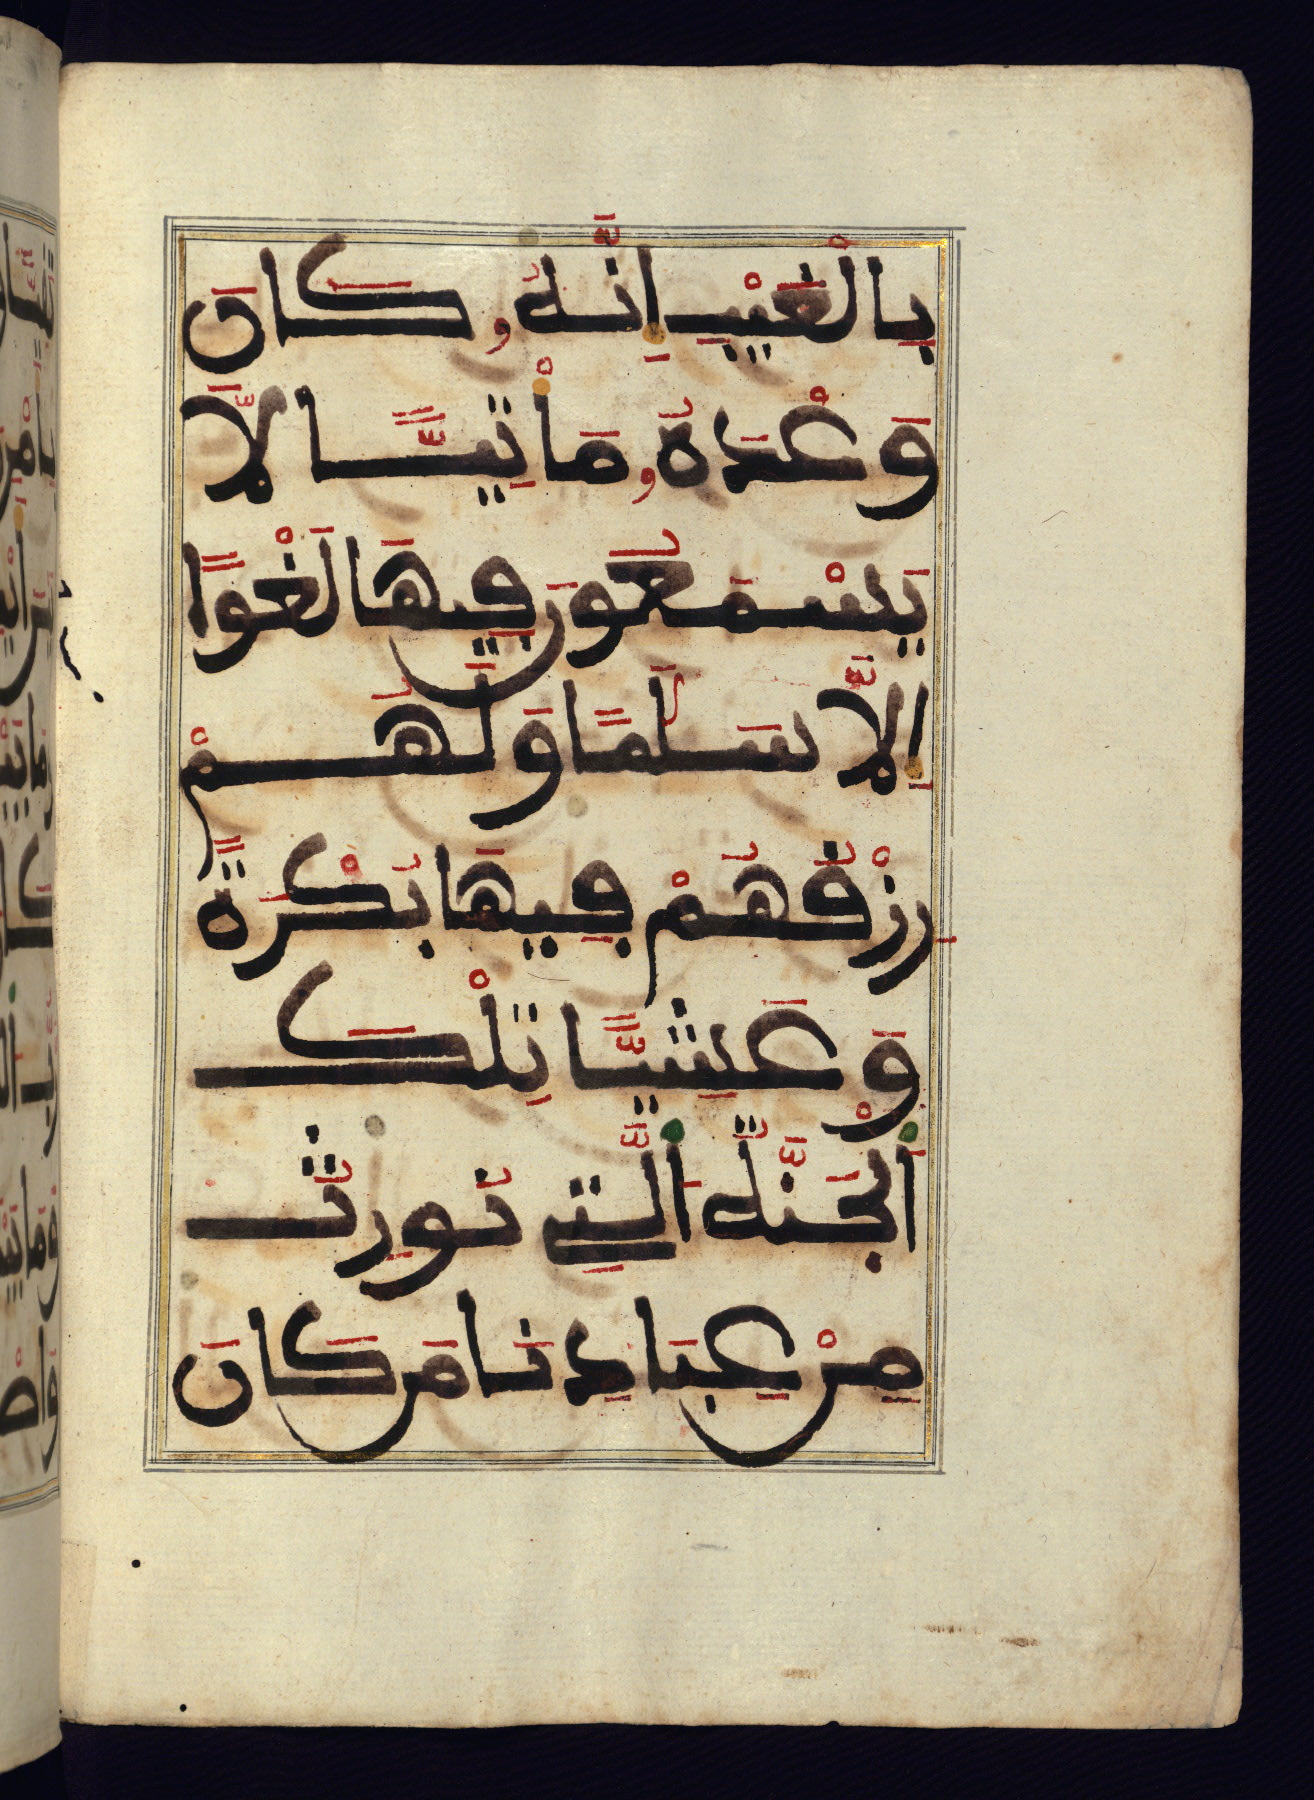 بِالْغَيْبِ إِنَّهُۥ كَانَ
وَعْدُهُۥ مَأْتِيًّا لَّا
يَسْمَعُونَ فِيهَا لَغْوًا
إِلَّا سَلَٰمًا وَلَهُمْ
رِزْقُهُمْ فِيهَا بُكْرَةً
وَعَشِيًّا تِلْكَ
ٱلْجَنَّةُ ٱلَّتِي نُورِثُ
مِنْ عِبَادِنَا مَن كَانَ